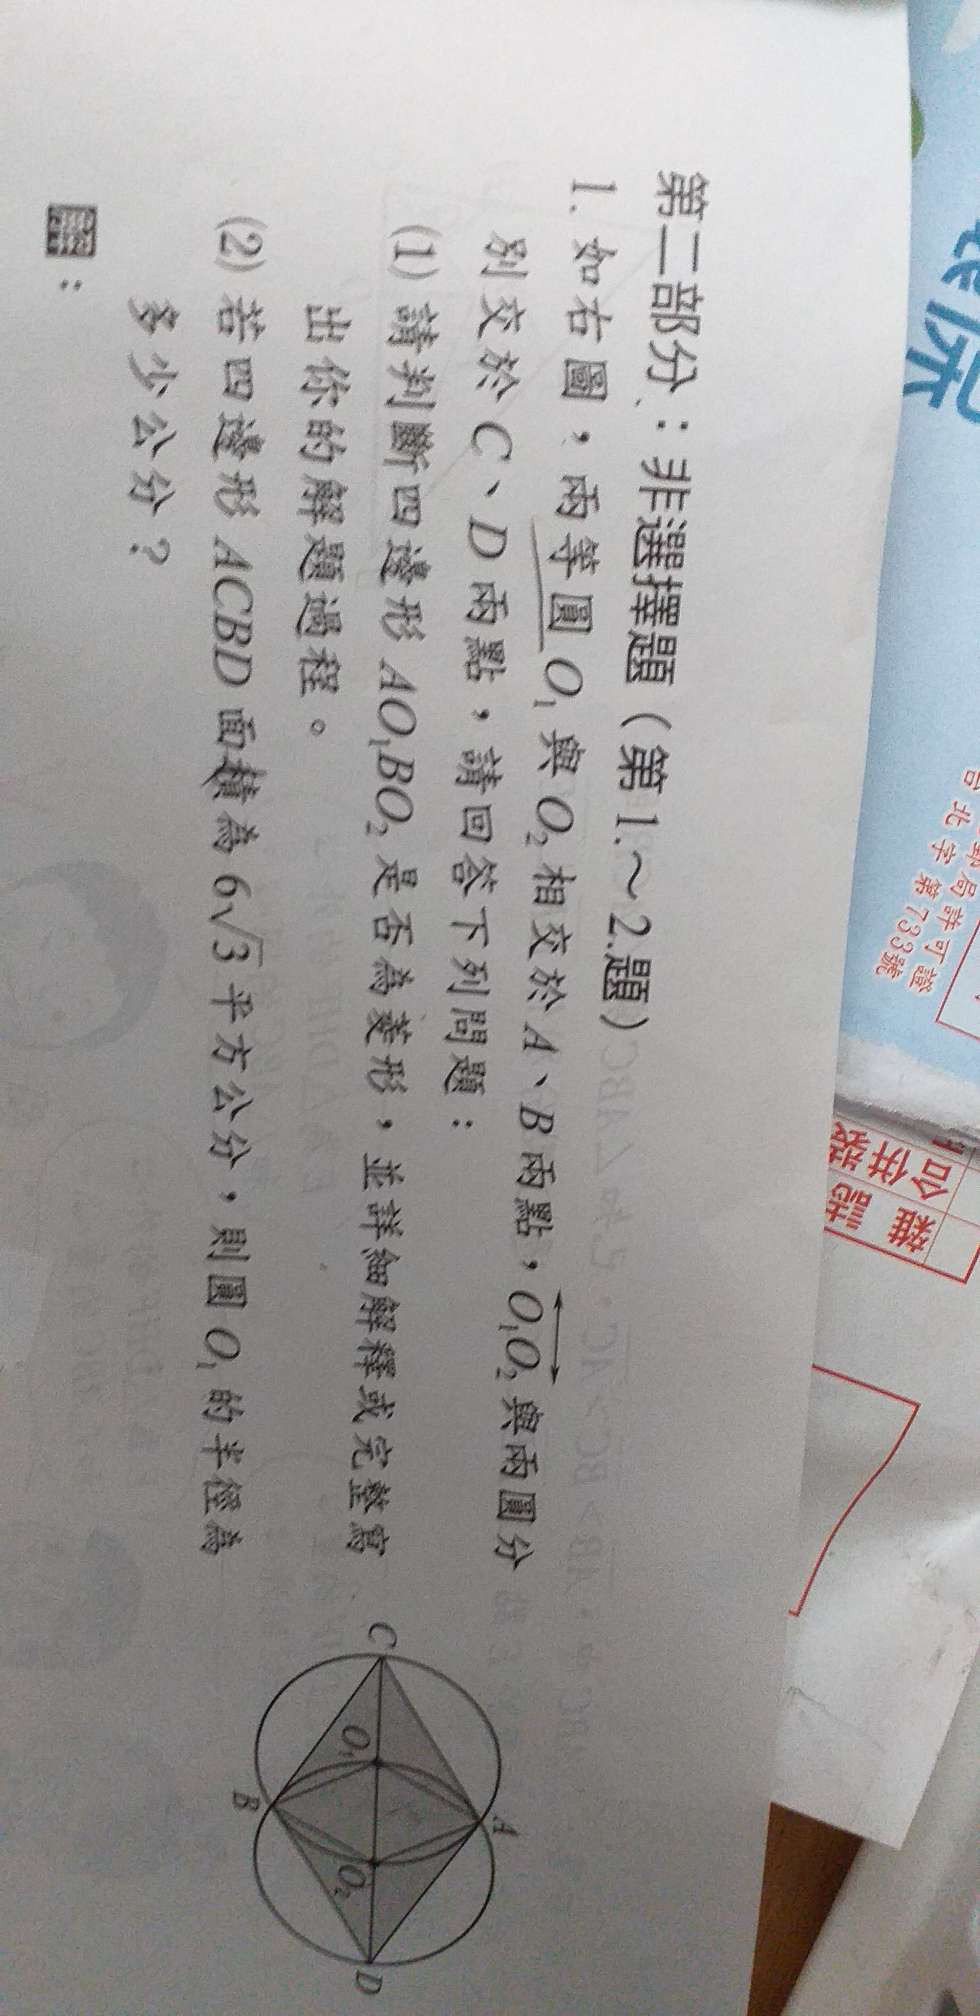 第二部分：非選擇題（第 1.～2.題）
1. 如右圖，兩等圓 O₁ 與 O₂ 相交於 A、B 兩點，O₁O₂ 與兩圓分
別交於 C、D 兩點，請回答下列問題：
(1) 請判斷四邊形 AO₁BO₂ 是否為菱形，並詳細解釋或完整寫
出你的解題過程。
(2) 若四邊形 ACBD 面積為 6√3 平方公分，則圓 O₁ 的半徑為
多少公分？
C
O₁
A
B
O₂
D
局許可證
台北字第733號
雜誌
合併裝